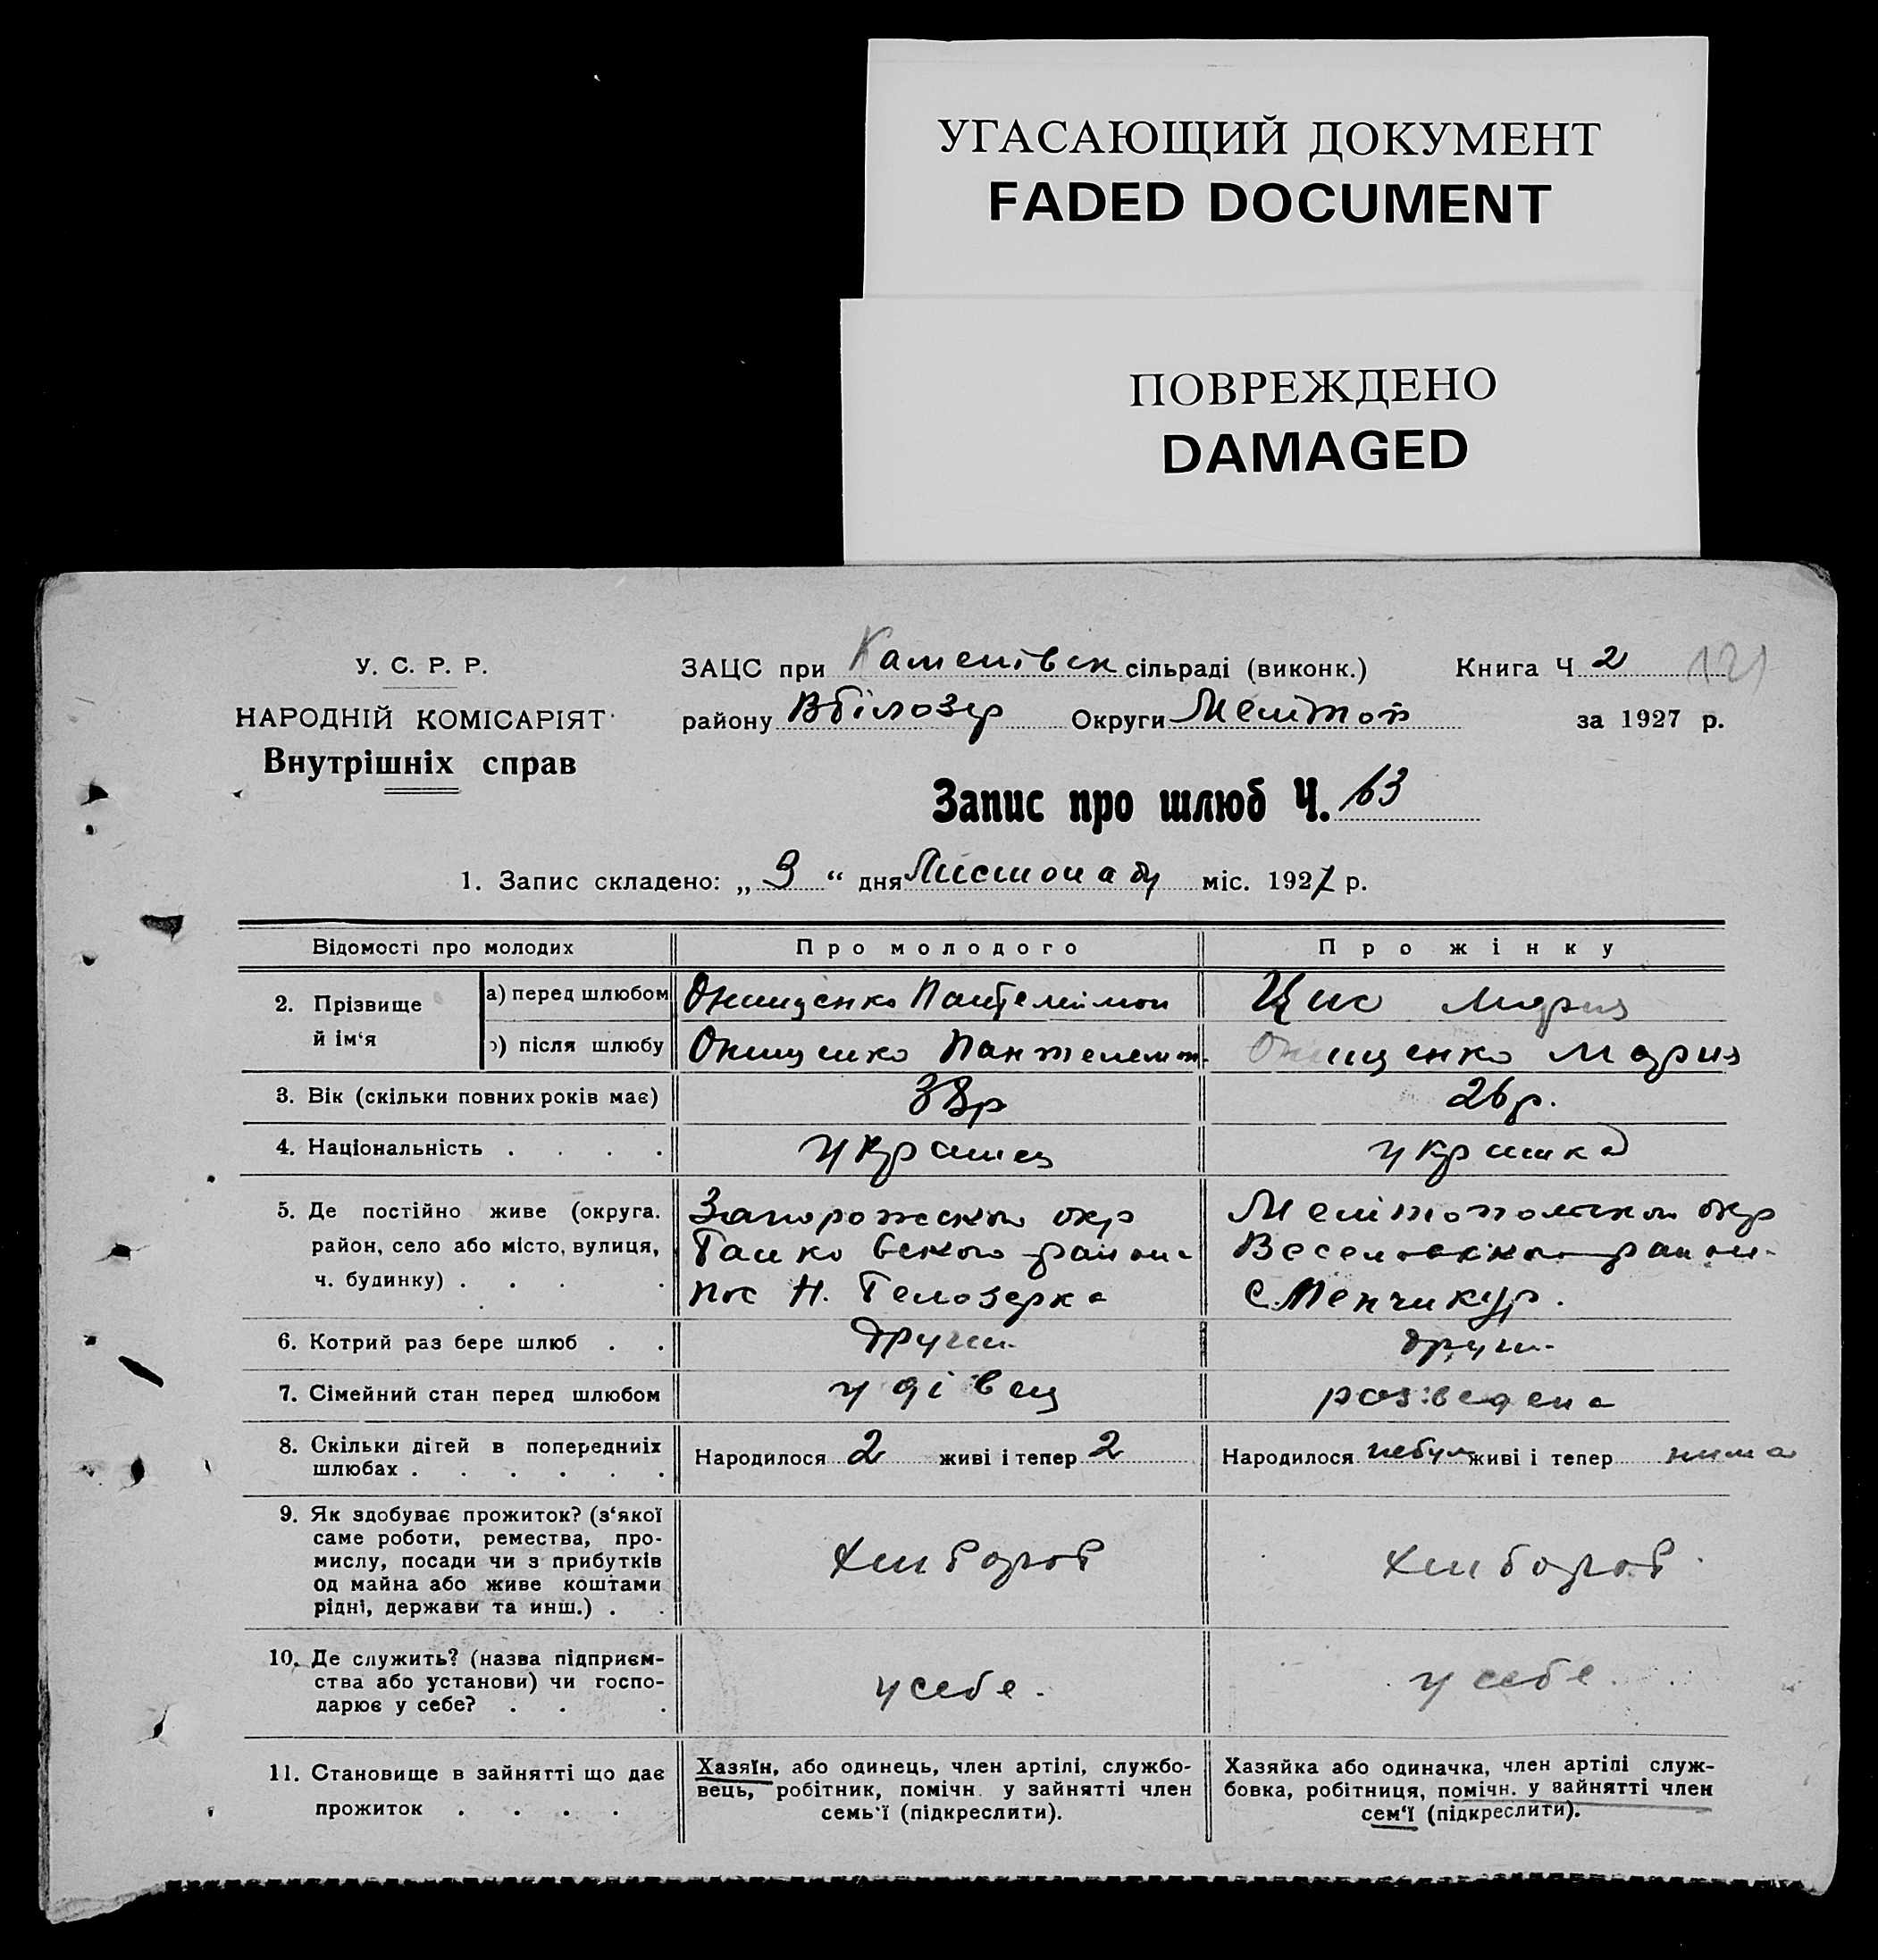 УГАСАЮЩИЙ ДОКУМЕНТ
FADED DOCUMENT
ПОВРЕЖДЕНО
DAMAGED
У. С. Р. Р.
НАРОДНІЙ КОМІСАРІЯТ
Внутрішніх справ
ЗАЦС при Каменівск сільраді (виконк.) Книга Ч 2 121
району Вбілозер Округи Мелітоп за 1927 р.
Запис про шлюб Ч. 63
1. Запис складено: „ 9 “ дня Листопаду міс. 1927 р.
Відомості про молодих Про молодого Про жінку
2. Прізвище й ім‘я
а) перед шлюбом Онищенко Пантелеімон Цис Мария
б) після шлюбу Онищенко Пантелемон Онищенко Мария
3. Вік (скільки повних років має) 38р 26р.
4. Національність . . . . украинец украинка
5. Де постійно живе (округа. Запорожского окр Мелітопольского окр
район, село або місто, вулиця, района Веселовского района
ч. будинку) . . . . пос Н. Белозерка с. Менчикур.
6. Котрий раз бере шлюб . . други други
7. Сімейний стан перед шлюбом удівец розведена
8. Скільки дітей в попередниїх Народилося 2 живі і тепер 2 Народилося небул живі і тепер нима
шлюбах . . . . . .
9. Як здобуває прожиток? (з‘якої
саме роботи, ремества, про-
мислу, посади чи з прибутків хлибороб хлибороб
од майна або живе коштами
рідні, держави та инш.) . .
10. Де служить? (назва підприєм-
ства або установи) чи госпо- у себе. у себе.
дарює у себе? . . .
11. Становище в зайнятті що дає
прожиток . . . .
Хазяїн, або одинець, член артілі, службо-
вець, робітник, помічн. у зайнятті член
семь‘ї (підкреслити).
Хазяйка або одиначка, член артілі служ-
бовка, робітниця, помічн. у зайнятті член
сем‘ї (підкреслити).